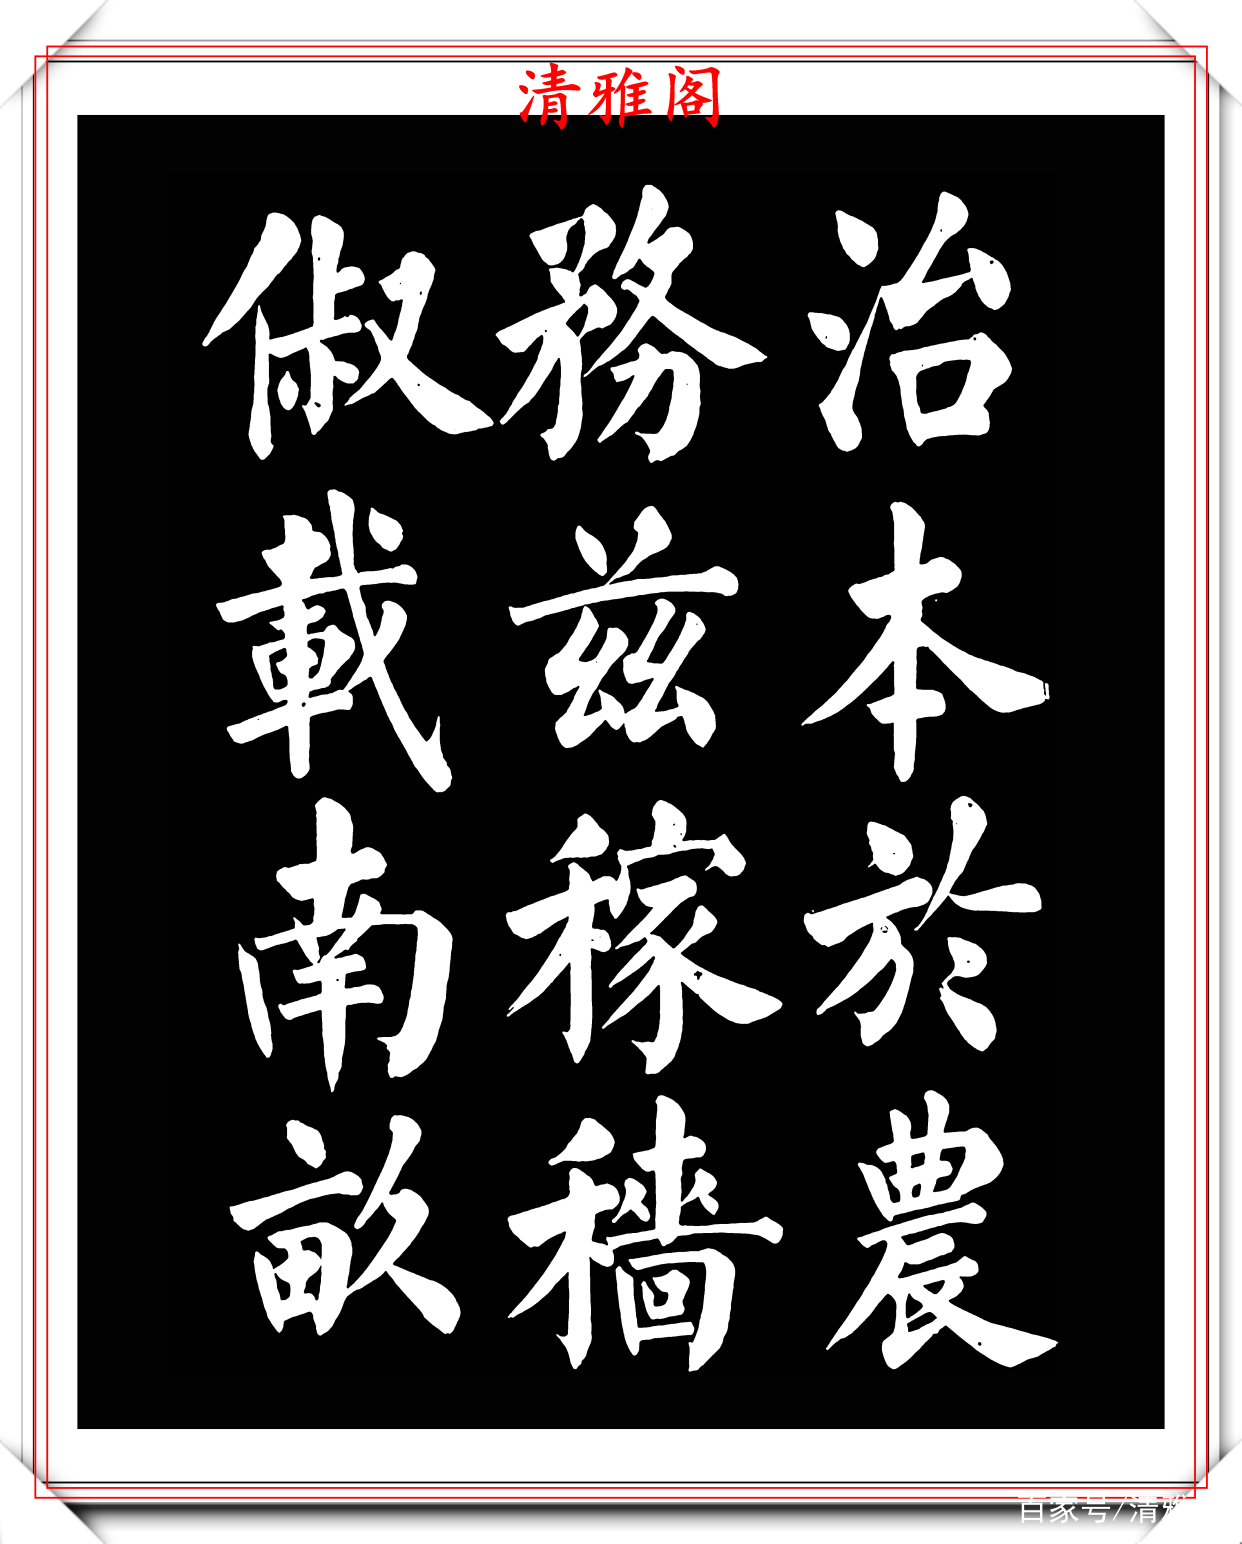 清雅阁
治本於農
務兹稼穡
俶載南畝
百家号/清雅